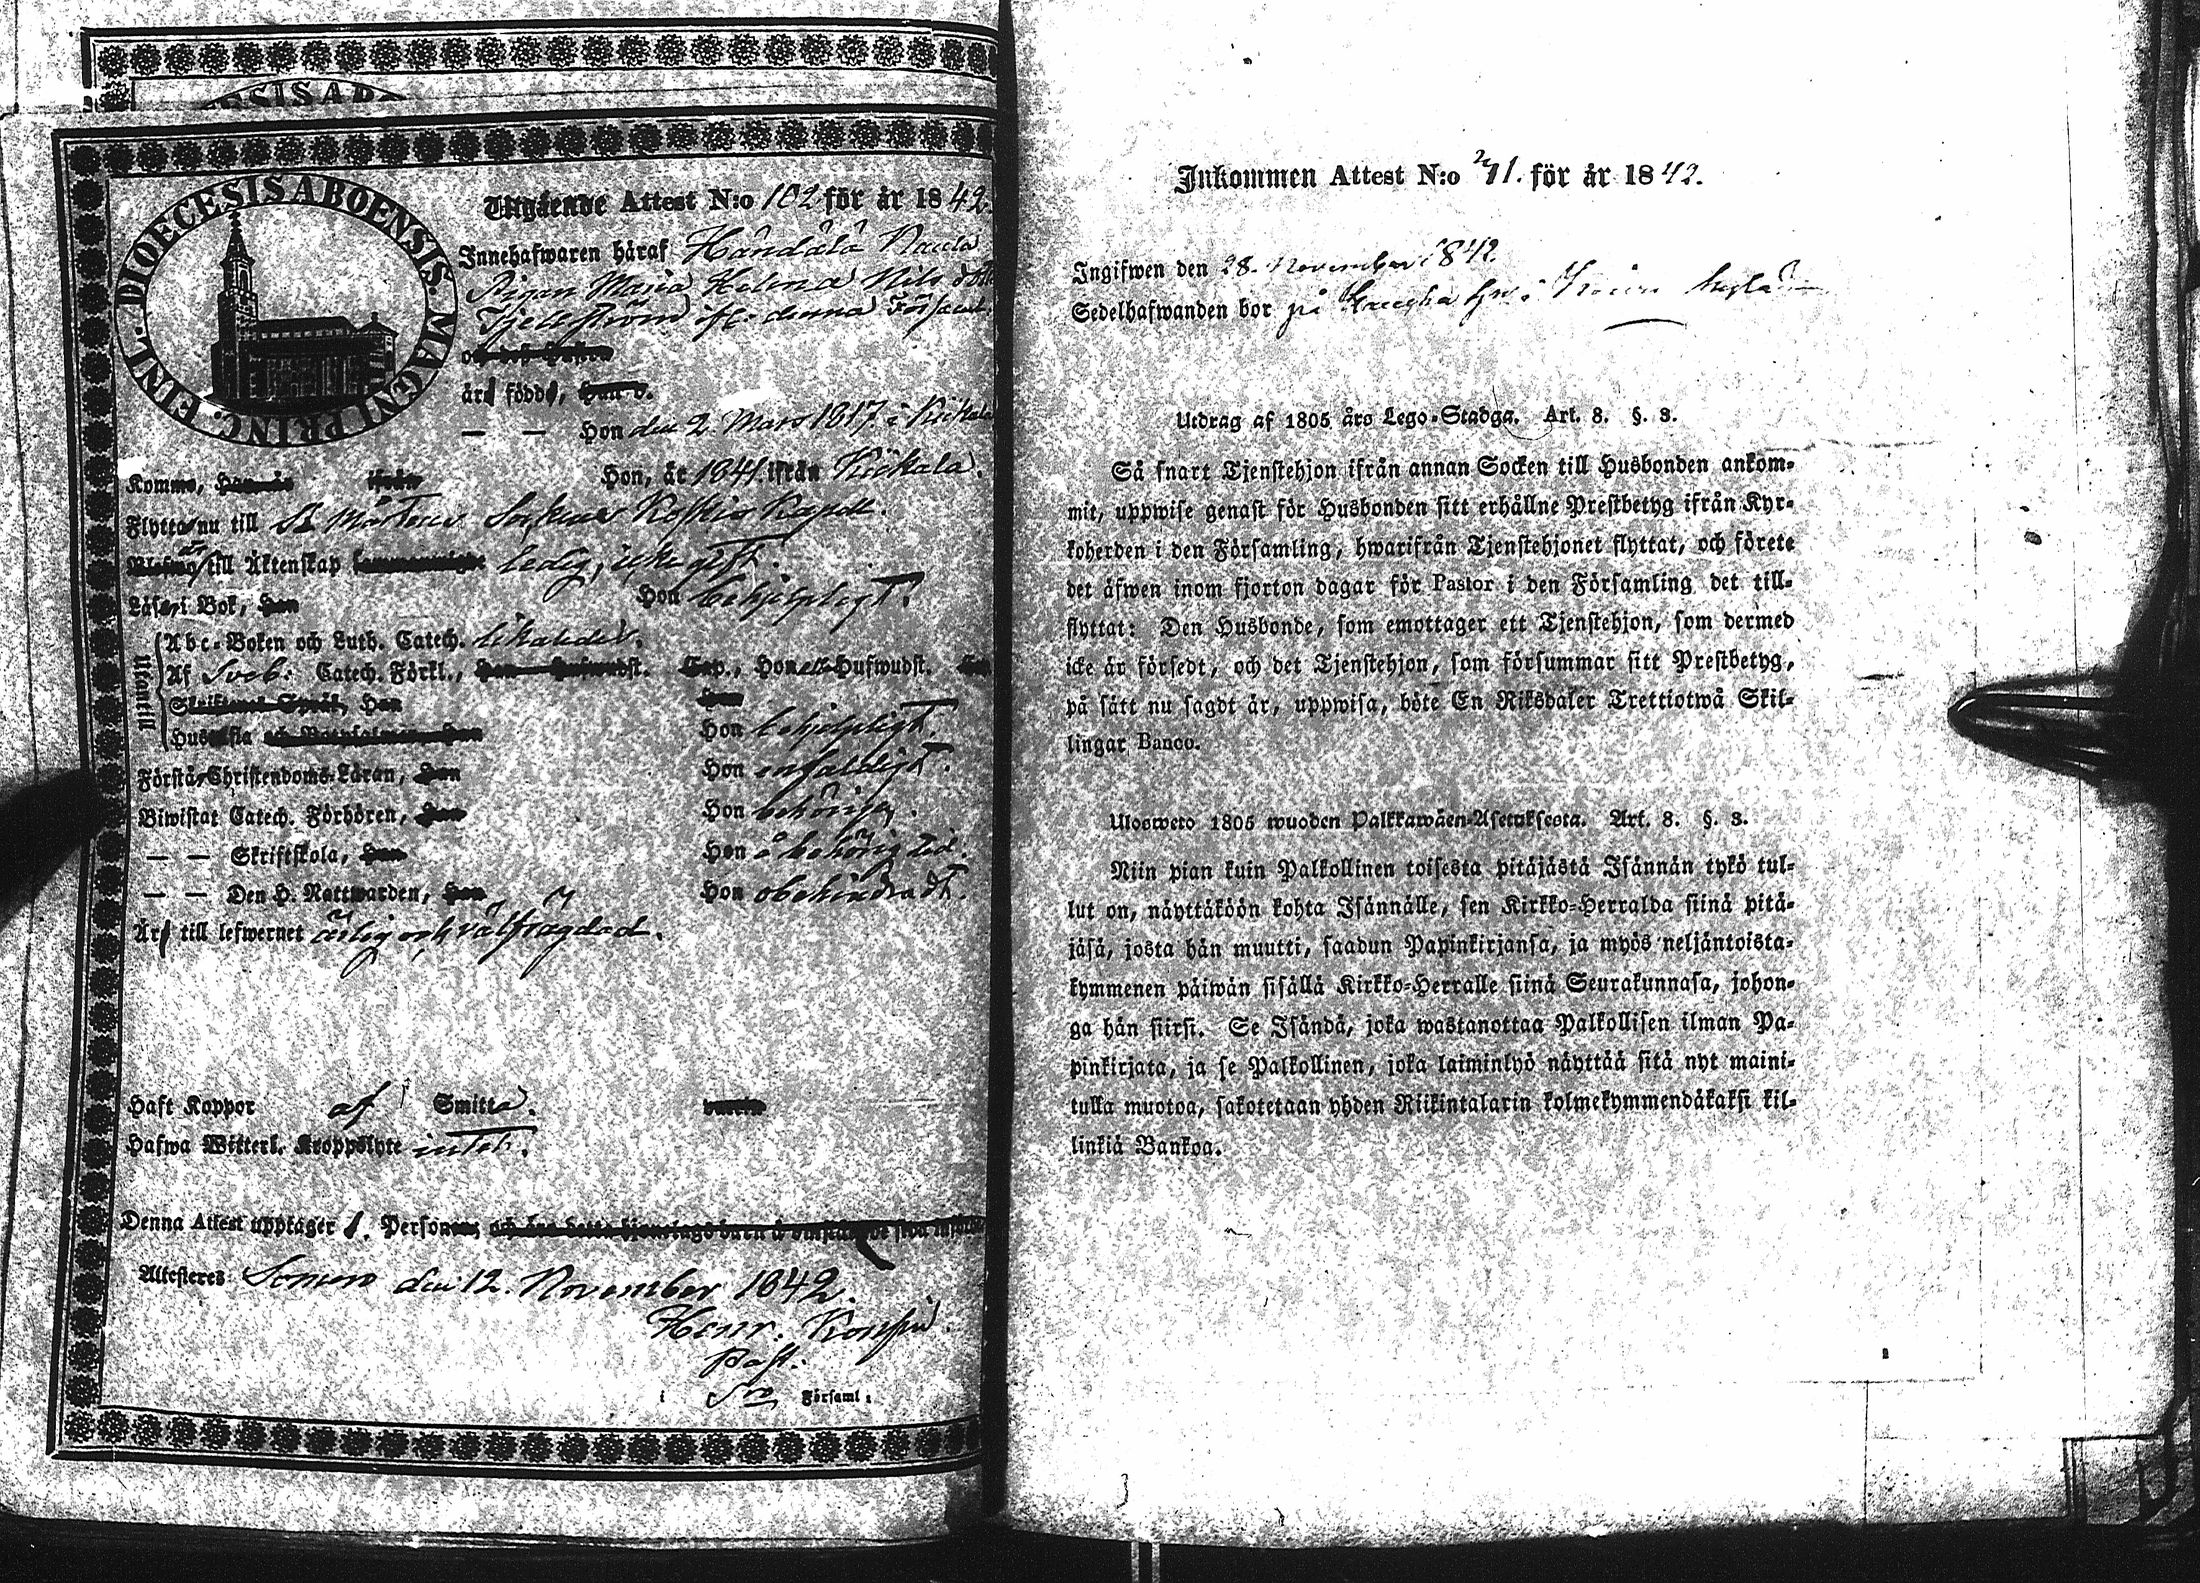 DIOECESIS ABOENSIS. MAGNI PRINC. FINL.
Utgående Attest N:o 102 för år 1842.
Innehafwaren häraf Händälä
Pigan Maria Helena Nils dotter
Tjellström denna Församl.
och dess Hustru
äro födde, Han d.
— — Hon den 2 Mars 1817 i Kiikala
Kommo, Han år ifrån Hon, år 1841 ifrån Kiikala.
Flytta nu till St Mårtens Sockens Koskis Kapell.
till Äktenskap ledig, icke gift.
Läsa i Bok, Han Hon behjelpligt.
Utantill
Abc-Boken och Luth. Catech. likaledes.
Af Sveb. Catech. Förkl., Han Hufwudst. Cap., Hon alla Hufwudst.
Skriftenes Språk, Han
Hustafla Hon behjelpligt.
Förstå Christendoms-Läran, Han Hon enfaldigt.
Biwistat Catech. Förhören, Han Hon behörigen.
— — Skriftskola, Han Hon å behörig tid.
— — Den H. Nattwarden, Han Hon obehindradt.
Är till lefwernet ärlig och välfrägdad.
Haft Koppor af Smitta.
Hafwa Witterl. Kroppslyte intet.
Denna Attest upptager 1. Personer,
Attesteres Somero den 12. November 1842.
Henr.
Past.
i Sro Församl:
Inkommen Attest N:o 71. för år 1842.
Ingifwen den 28. November 1842
Sedelhafwanden bor på
Utdrag af 1805 års Lego-Stadga. Art. 8. §. 3.
Så snart Tjenstehjon ifrån annan Socken till Husbonden ankom-
mit, uppwise genast för Husbonden sitt erhållne Prestbetyg ifrån Kyr-
koherden i den Församling, hwarifrån Tjenstehjonet flyttat, och förete
det äfwen inom fjorton dagar för Pastor i den Församling det till-
flyttat: Den Husbonde, som emottager ett Tjenstehjon, som dermed
icke är försedt, och det Tjenstehjon, som försummar sitt Prestbetyg,
på sätt nu sagdt är, uppwisa, böte En Riksdaler Trettiotwå Skil-
lingar Banco.
Ulosweto 1805 wuoden Palkkawäen-Asetuksesta. Art. 8. §. 3.
Niin pian kuin Palkollinen toisesta pitäjästä Isännän tykö tul-
lut on, näyttäköön kohta Isännälle, sen Kirkko-Herralda siinä pitä-
jäsä, josta hän muutti, saadun Papinkirjansa, ja myös neljäntoista-
kymmenen päiwän sisällä Kirkko-Herralle siinä Seurakunnasa, johon-
ga hän siirsi. Se Isändä, joka wastanottaa Palkollisen ilman Pa-
pinkirjata, ja se Palkollinen, joka laiminlyö näyttää sitä nyt maini-
tulla muotoa, sakotetaan yhden Riikintalarin kolmekymmendäkaksi kil-
linkiä Bankoa.